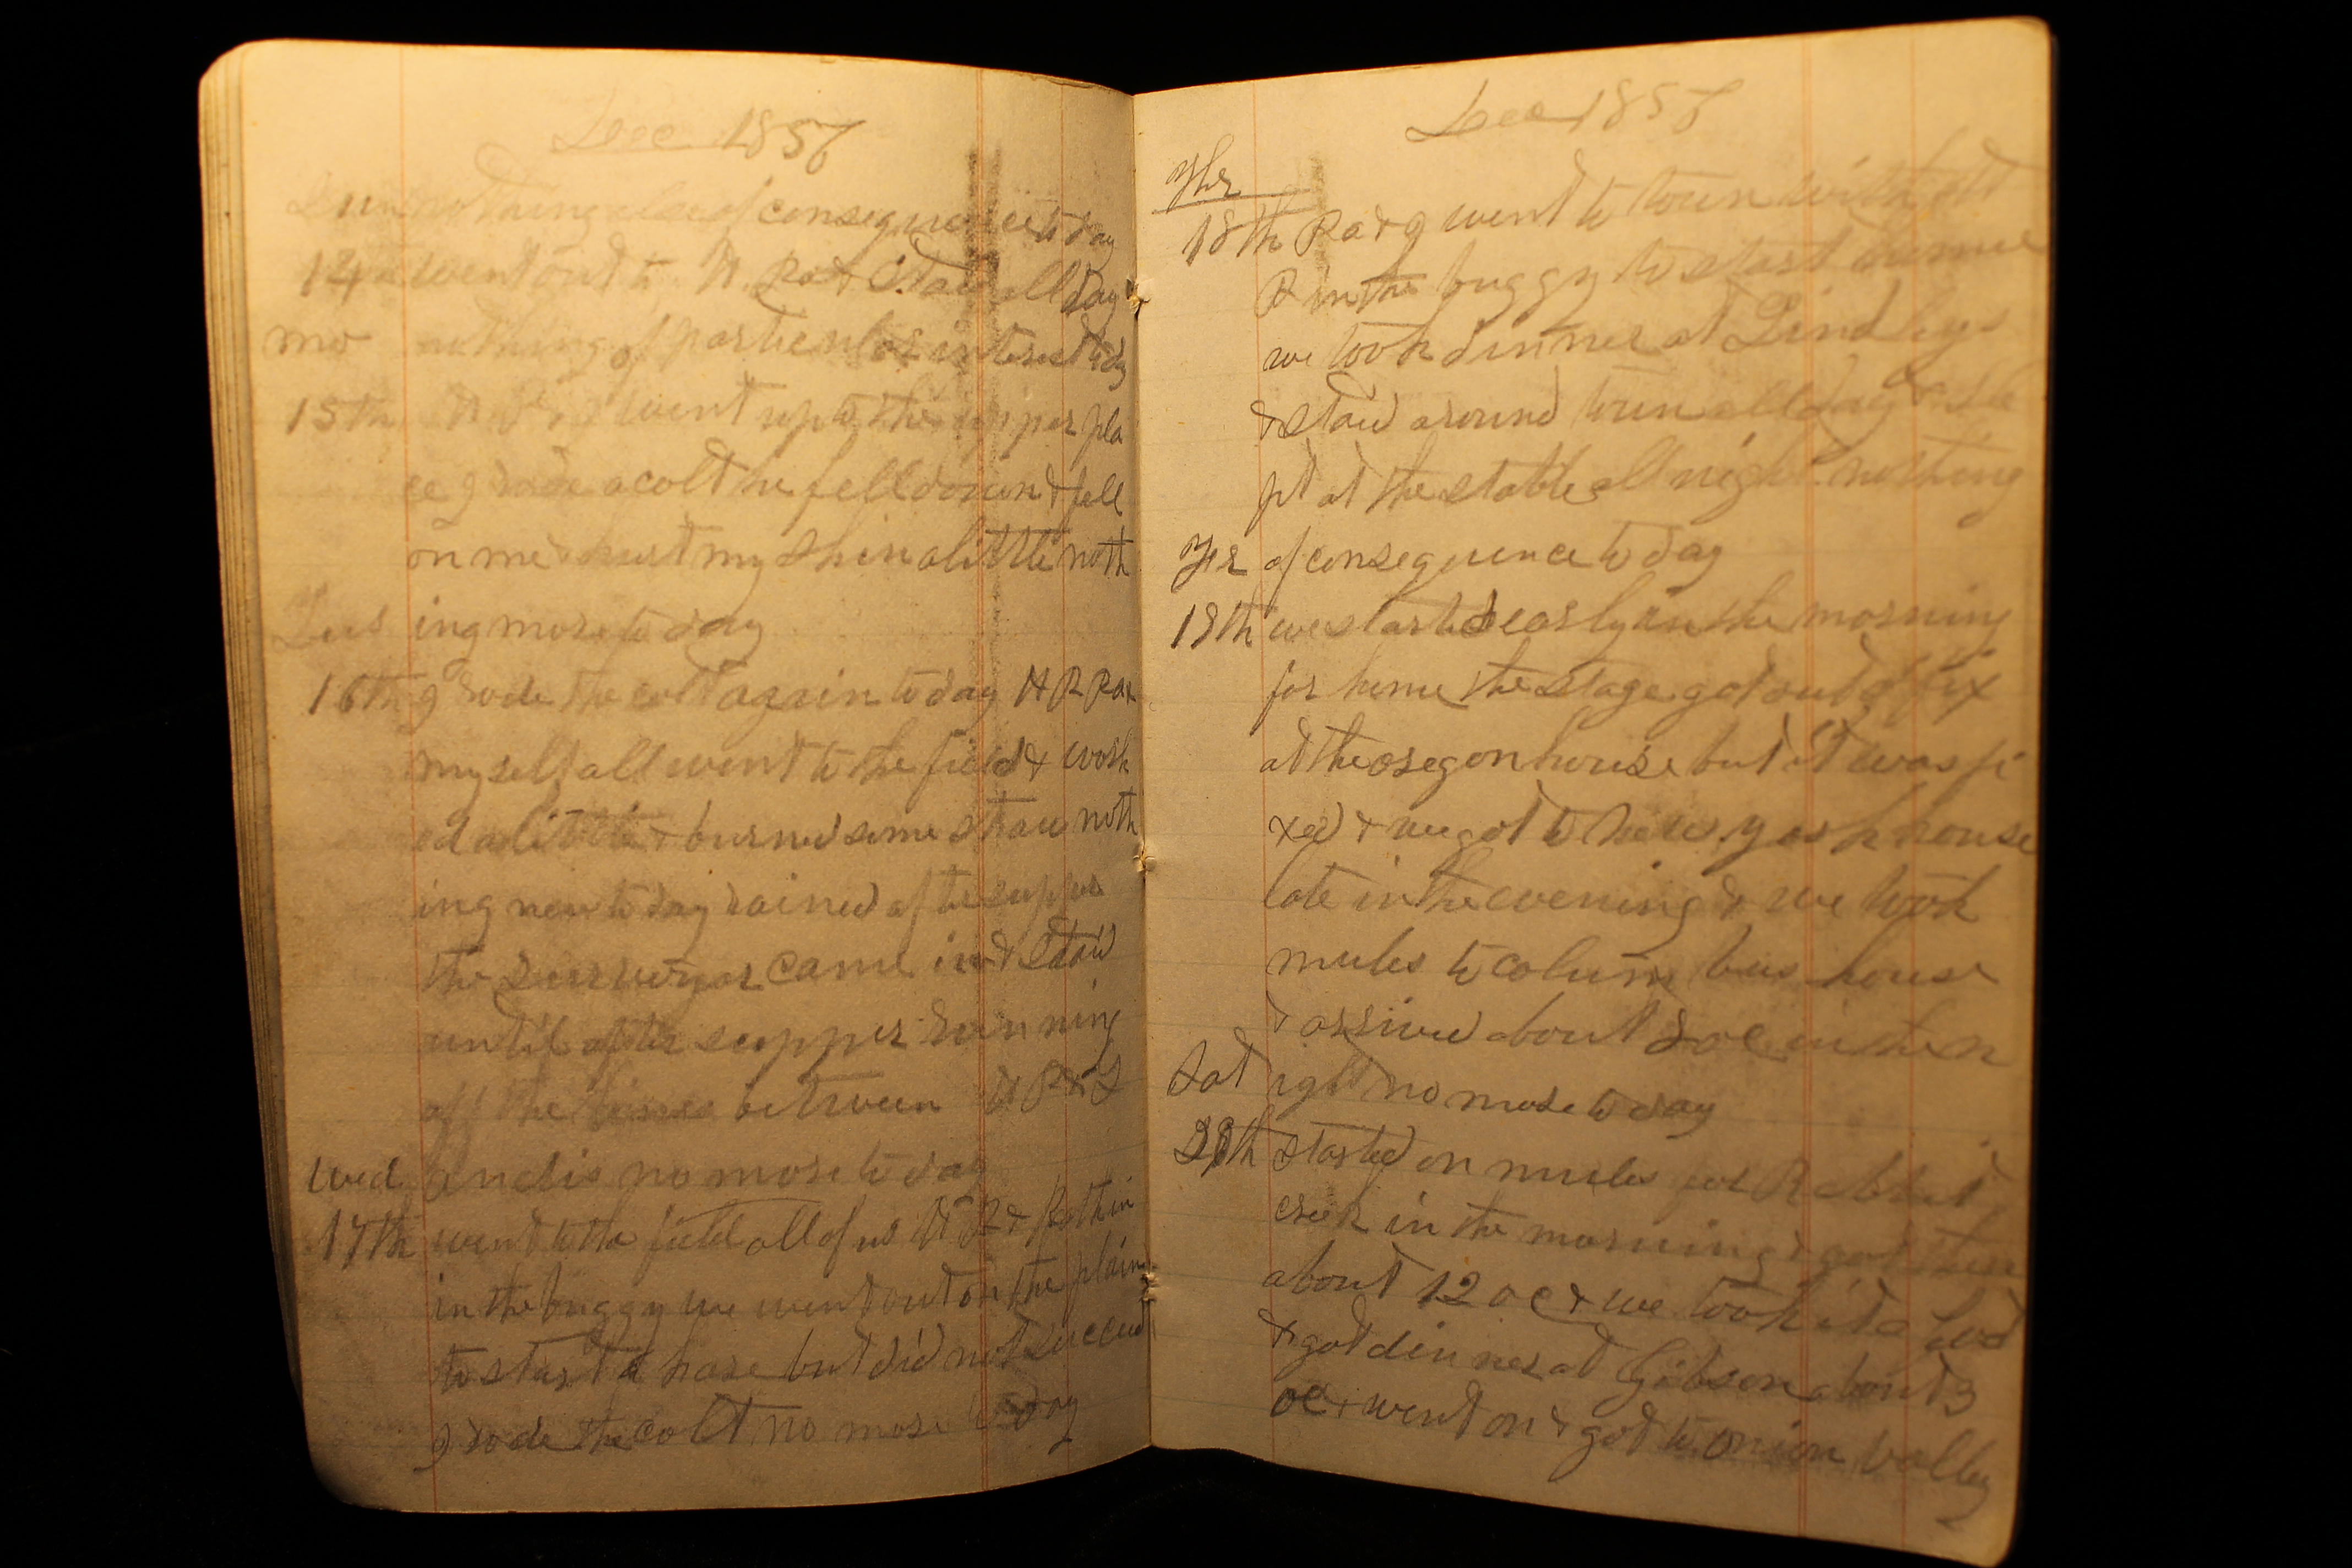 Dec 1856
Sun nothing else of consequence to day
14 went out to H. Ra & Staid all day
mo nothing of particular interest to dy
15th went up to the upper pla
ce I rode a colt he fell down & fell
on me & hurt my shin a little noth
Tues ing more to day
16th I rode the colt again to day H R Ra &
myself all went to the field & work
ed a little & burned some straw noth
ing new to day rained after supper
the surveyor came in & staid
until after supper running
off the lines between H R & L
Wed no more to day
17th went to the field all of us H R &
in the buggy we went out on the plains
to start a hare but did not succeed
I rode the colt no more to day
Dec 1856
Ths
18th Ra & I went to town with H
R in the buggy to start home
we took dinner at Lindleys
& staid around town all day & sle
pt at the stable all night nothing
Fri of consequence to day
19th we started early in the morning
for home the stage got out of fix
at the oregon house but it was fi
xed & we got to new york house
late in the evening & we took
mules to colum bus house
& arrived about 8 oc in the n
Sat ight no more to day
20th started on mules for Rabbit
creek in the morning & got there
about 12 oc & we took it a foot
& got dinner at Gibson about 3
oc & went on & got to onion valley